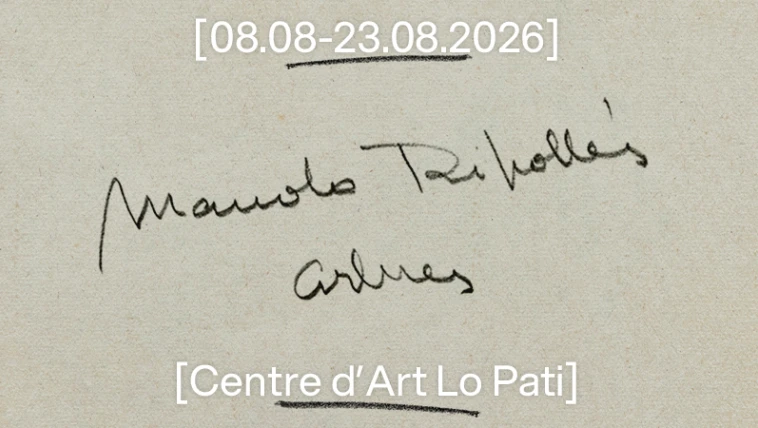 [08.08-23.08.2026]
Manolo Ripollés
arbres
[Centre d'Art Lo Pati]